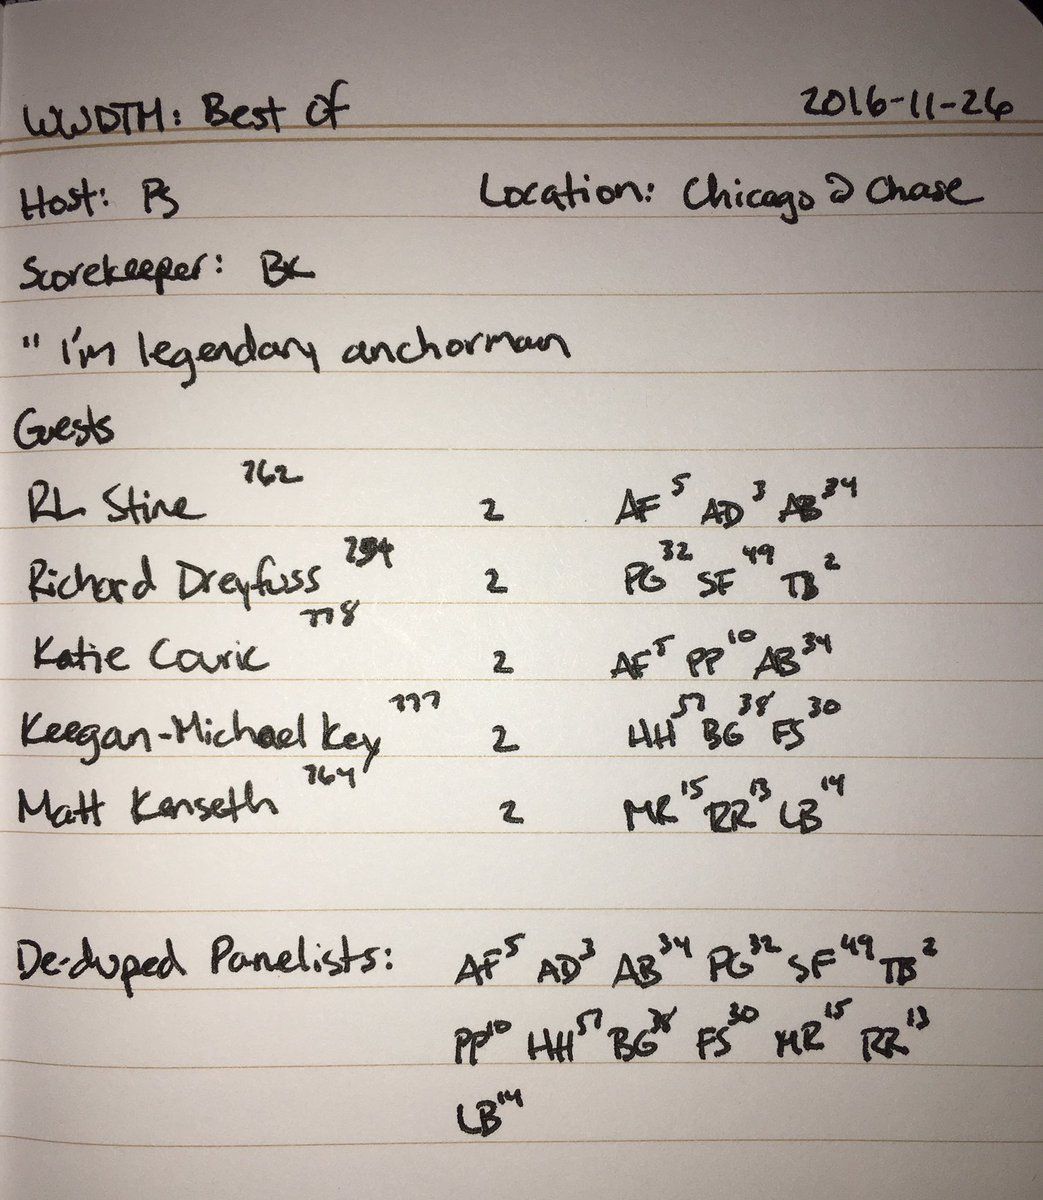 WWDTM: Best Of 2016-11-26
Host: PS Location: Chicago @ Chase
Scorekeeper: BK
" I'm legendary anchorman
Guests
RL Stine 762 2 AF 5 AD 3 AB 34
Richard Dreyfuss 2 PG 32 SF 49 TB 2
Katie Couric 778 2 AF 5 PP 10 AB 34
Keegan-Michael Key 777 2 HH 57 BG 38 FS 30
Matt Kenseth 764 2 MR 15 RR 13 LB 14
De-duped Panelists: AF 5 AD 3 AB 34 PG 32 SF 49 TB 2
PP 10 HH 57 BG 38 FS 30 MR 15 RR 13
LB 14